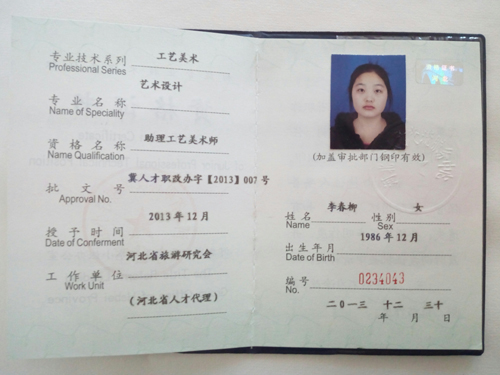 专业技术系列 工艺美术
Professional Series
艺术设计
专业名称
Name of Speciality
资格名称 助理工艺美术师
Name Qualification
批文号 冀人才职改办字【2013】007号
Approval No.
2013年12月
授予时间
Date of Conferment
河北省旅游研究会
工作单位
Work Unit
(河北省人才代理)
(加盖审批部门钢印有效)
姓名 李春柳 性别 女
Name Sex
1986年12月
出生年月
Date of Birth
编号 0234043
No.
二〇一三 十二 三十
年 月 日